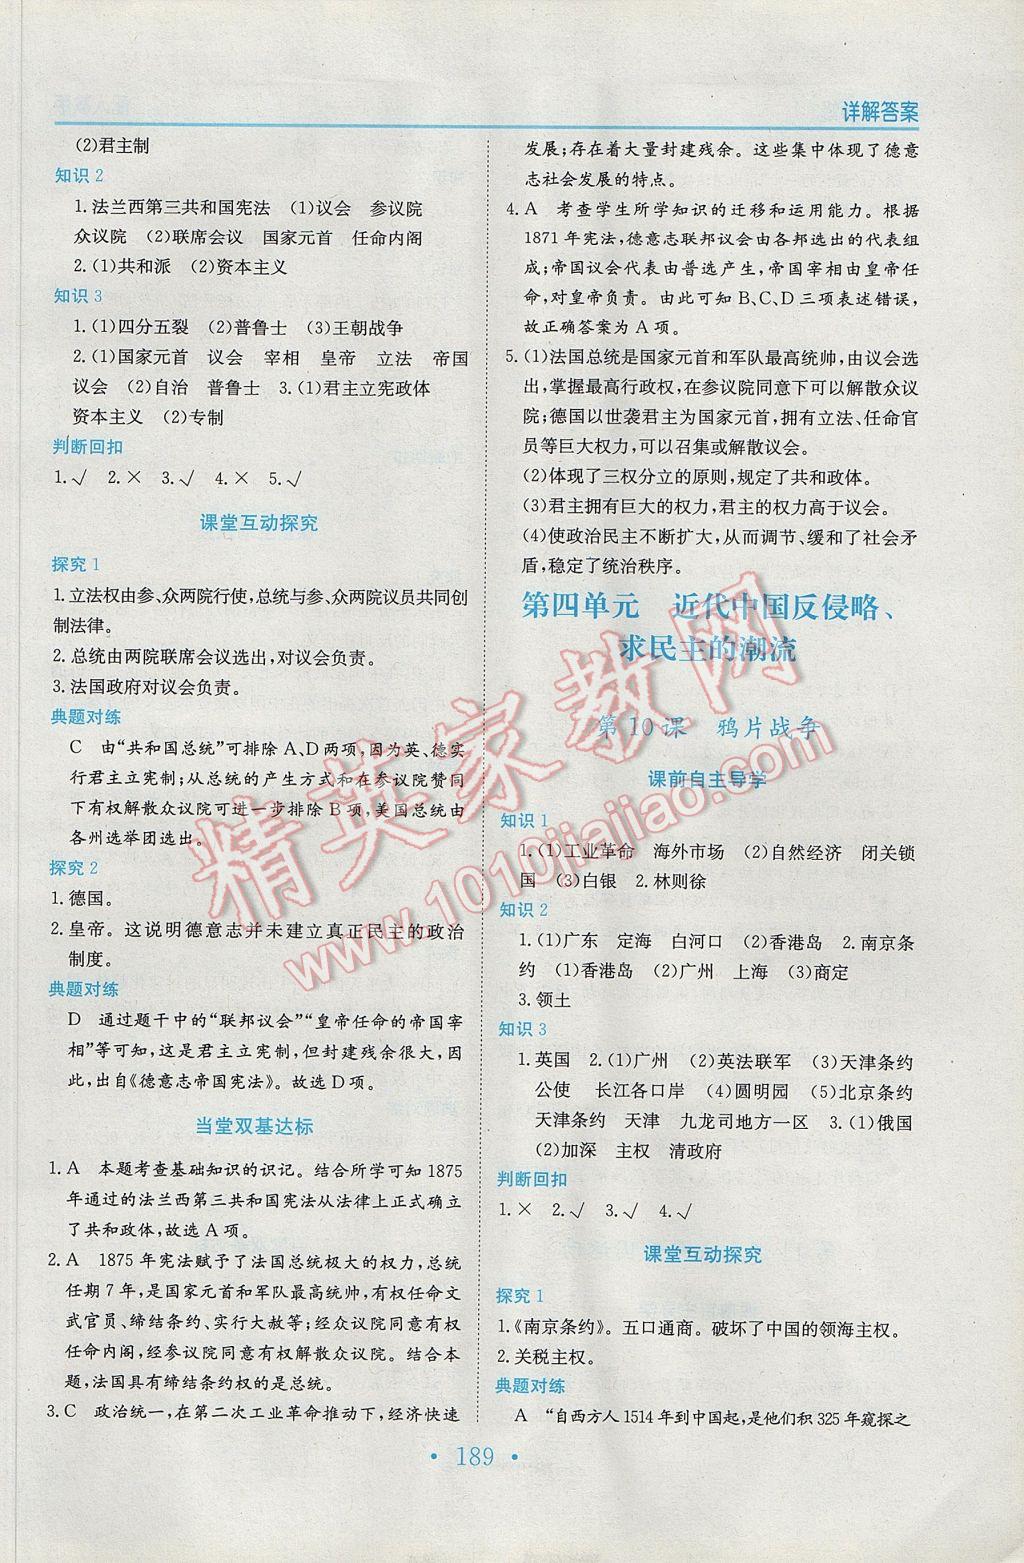 详解答案
(2)君主制
知识2
1.法兰西第三共和国宪法 (1)议会 参议院
众议院 (2)联席会议 国家元首 任命内阁
2.(1)共和派 (2)资本主义
知识3
1.(1)四分五裂 (2)普鲁士 (3)王朝战争
2.(1)国家元首 议会 宰相 皇帝 立法 帝国
议会 (2)自治 普鲁士 3.(1)君主立宪政体
资本主义 (2)专制
判断回扣
1.√ 2.× 3.√ 4.× 5.√
课堂互动探究
探究1
1.立法权由参、众两院行使,总统与参、众两院议员共同创
制法律。
2.总统由两院联席会议选出,对议会负责。
3.法国政府对议会负责。
典题对练
C 由“共和国总统”可排除A、D两项,因为英、德实
行君主立宪制;从总统的产生方式和在参议院赞同
下有权解散众议院可进一步排除B项,美国总统由
各州选举团选出。
探究2
1.德国。
2.皇帝。这说明德意志并未建立真正民主的政治
制度。
典题对练
D 通过题干中的“联邦议会”“皇帝任命的帝国宰
相”等可知,这是君主立宪制,但封建残余很大,因
此,出自《德意志帝国宪法》。故选D项。
当堂双基达标
1.A 本题考查基础知识的识记。结合所学可知1875
年通过的法兰西第三共和国宪法从法律上正式确立
了共和政体,故选A项。
2.A 1875年宪法赋予了法国总统极大的权力,总统
任期7年,是国家元首和军队最高统帅,有权任命文
武官员、缔结条约、实行大赦等;经众议院同意有权
任命内阁,经参议院同意有权解散众议院。结合本
题,法国具有缔结条约权的是总统。
3.C 政治统一,在第二次工业革命推动下,经济快速
发展;存在着大量封建残余。这些集中体现了德意
志社会发展的特点。
4.A 考查学生所学知识的迁移和运用能力。根据
1871年宪法,德意志联邦议会由各邦选出的代表组
成;帝国议会代表由普选产生,帝国宰相由皇帝任
命,对皇帝负责。由此可知B、C、D三项表述错误,
故正确答案为A项。
5.(1)法国总统是国家元首和军队最高统帅,由议会选
出,掌握最高行政权,在参议院同意下可以解散众议
院;德国以世袭君主为国家元首,拥有立法、任命官
员等巨大权力,可以召集或解散议会。
(2)体现了三权分立的原则,规定了共和政体。
(3)君主拥有巨大的权力,君主的权力高于议会。
(4)使政治民主不断扩大,从而调节、缓和了社会矛
盾,稳定了统治秩序。
第四单元 近代中国反侵略、
求民主的潮流
第10课 鸦片战争
课前自主导学
知识1
1.(1)工业革命 海外市场 (2)自然经济 闭关锁
国 (3)白银 2.林则徐
知识2
1.(1)广东 定海 白河口 (2)香港岛 2.南京条
约 (1)香港岛 (2)广州 上海 (3)商定
3.领土
知识3
1.英国 2.(1)广州 (2)英法联军 (3)天津条约
公使 长江各口岸 (4)圆明园 (5)北京条约
天津条约 天津 九龙司地方一区 3.(1)俄国
(2)加深 主权 清政府
判断回扣
1.× 2.√ 3.√ 4.√
课堂互动探究
探究1
1.《南京条约》。五口通商。破坏了中国的领海主权。
2.关税主权。
典题对练
A “自西方人1514年到中国起,是他们积325年窥探之
• 189 •
精英家教网
www.1010jiajiao.com